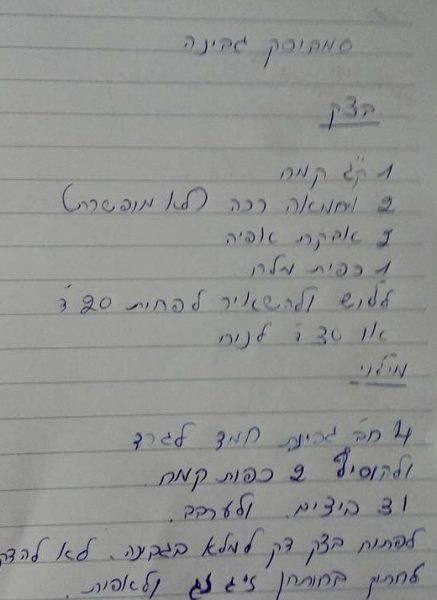 סמבוסק גבינה
הצק
1 ק"ג קמח
2 חמאה רכה (לא מופשרת)
2 אבקת אפיה
1 כפית מלח.
ללוש ולהשאיר לפחות 20 ד'
או 30 ד' לנוח
מילוי
4 חב' גבינת חמד לגרד
ולהוסיף 2 כפות קמח.
ו3 ביצים. ולערבב.
לפתוח בצק דק למלא בגבינה. לא להדק
לחתוך בחותכן זיג זג ולאפית.